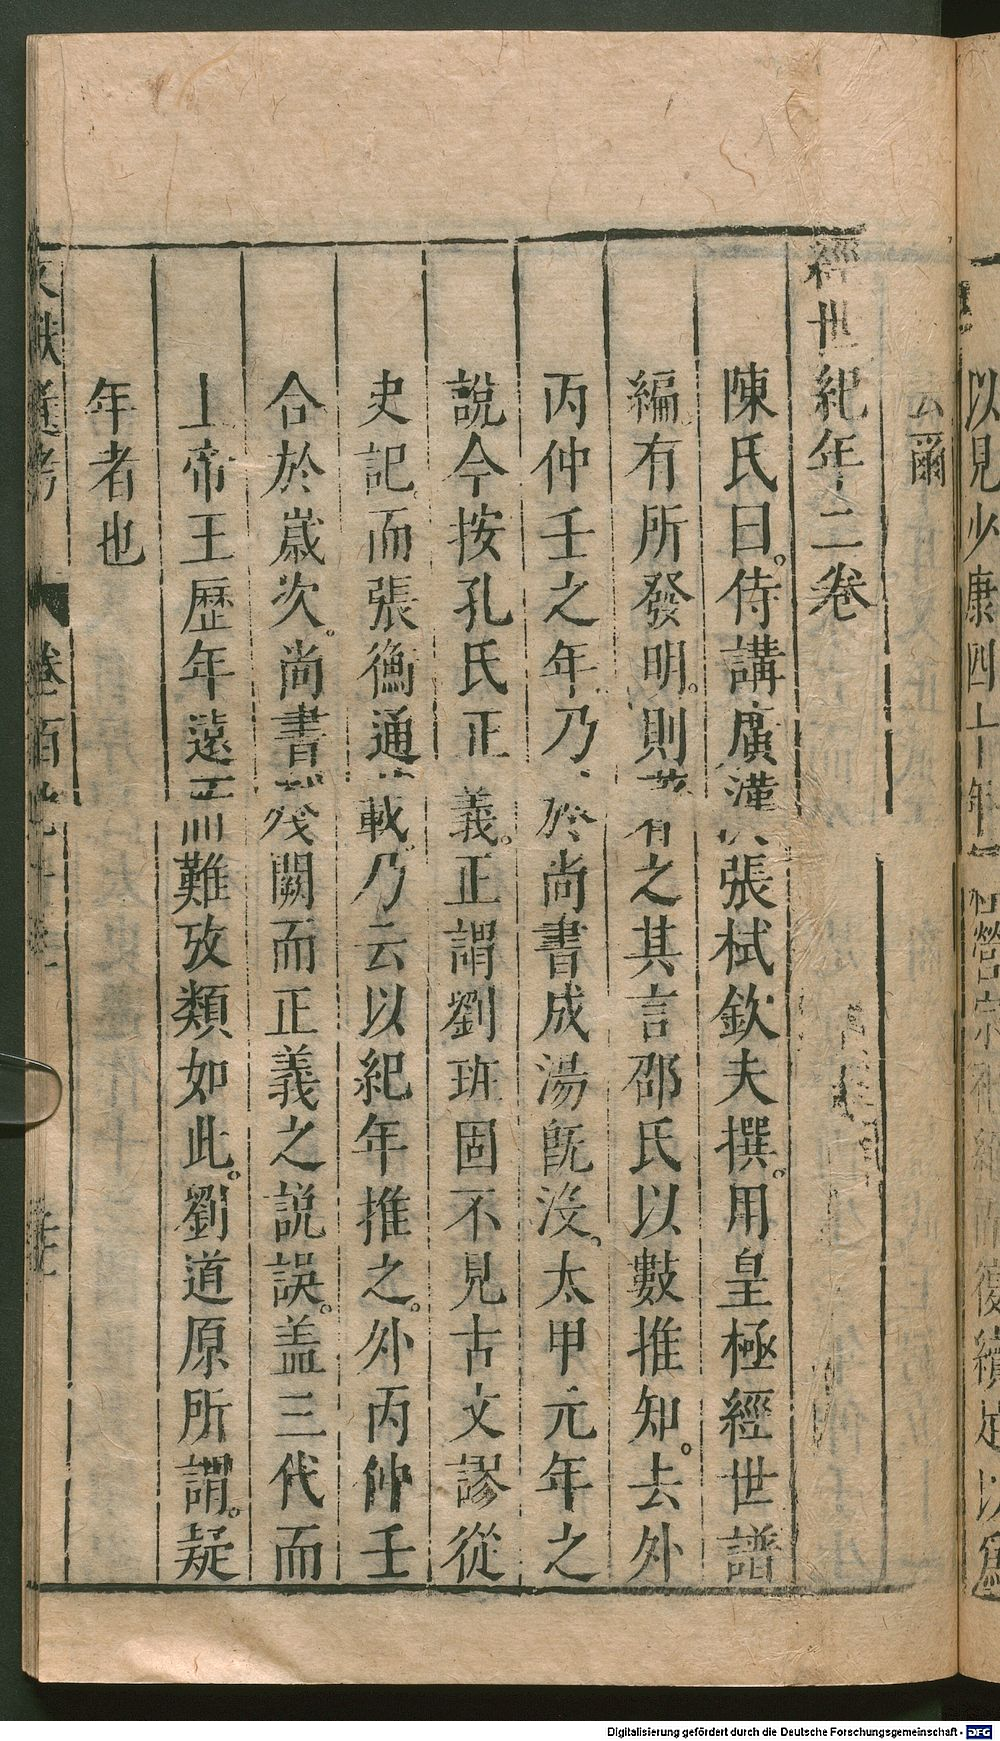 以見少康四上
云爾
經世紀年二卷
陳氏曰侍講廣漢張栻欽夫撰用皇極經世譜
編有所發明則著之其言邵氏以數推知去外
丙仲壬之年乃於尚書成湯旣沒太甲元年之
說今按孔氏正義正謂劉班固不見古文謬從
史記而張衡通載乃云以紀年推之外丙仲壬
合於歲次尚書殘闕而正義之說誤蓋三代而
上帝王歷年遠而難攷類如此劉道原所謂疑
年者也
文獻通考 卷一百九十三
Digitalisierung gefördert durch die Deutsche Forschungsgemeinschaft - DFG